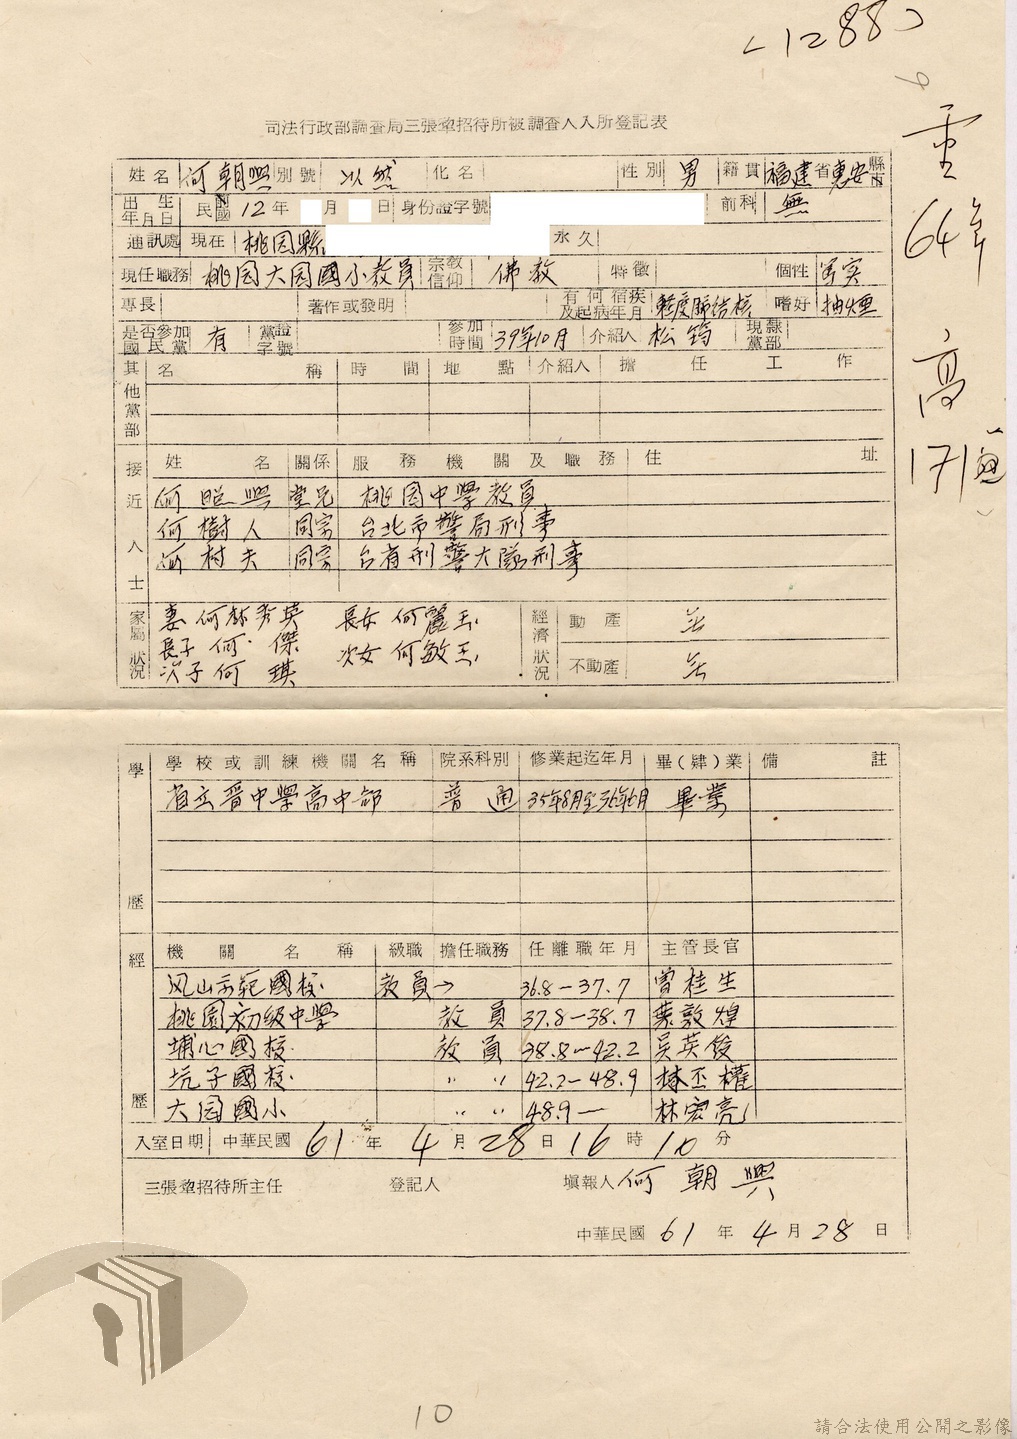 (1288)
司法行政部調查局三張犂招待所被調查人入所登記表
姓名 何朝興 別號 以然 化名 性別 男 籍貫 福建省惠安縣市
出生年月日 民國前 12年 月 日 身份證字號 前科 無
通訊處 現在 桃园縣 永久
現任職務 桃园大园國小教員 宗教信仰 佛教 特徵 個性
專長 著作或發明 有何宿疾及起病年月 輕度肺结核 嗜好 抽煙
是否參加國民黨 有 黨證字號 參加時間 39年10月 介紹人 松筠 現隸黨部
其他黨部 名稱 時間 地點 介紹人 擔任工作
接近人士 姓名 關係 服務機關及職務 住址
何昭興 堂兄 桃園中學教員
何樹人 同宗 台北市警局刑事
何村夫 同宗 台省刑警大隊刑事
家屬狀況 妻 何林秀英 長女 何麗玉 經濟狀況 動產 无
長子 何傑 次女 何敏玉
次子 何琪 不動產 无
學歷 學校或訓練機關名稱 院系科別 修業起迄年月 畢(肄)業 備註
省立晋中學高中部 普通 35年8月至36年七月 畢業
經歷 機關名稱 級職 擔任職務 任離職年月 主管長官
风山示範國校 教員→ 36.8－37.7 曾桂生
桃園初級中學 教員 37.8－38.7 葉敦煌
埔心國校 教員 38.8－42.2 吴英俊
坑子國校 〃 〃 42.2－48.9 林丕權
大园國小 〃 〃 48.9－ 林宏亮
入室日期 中華民國 61年 4月 28日 16時 10分
三張犂招待所主任 登記人 填報人 何朝興
中華民國 61年 4月 28日
64年
高
171
10
請合法使用公開之影像